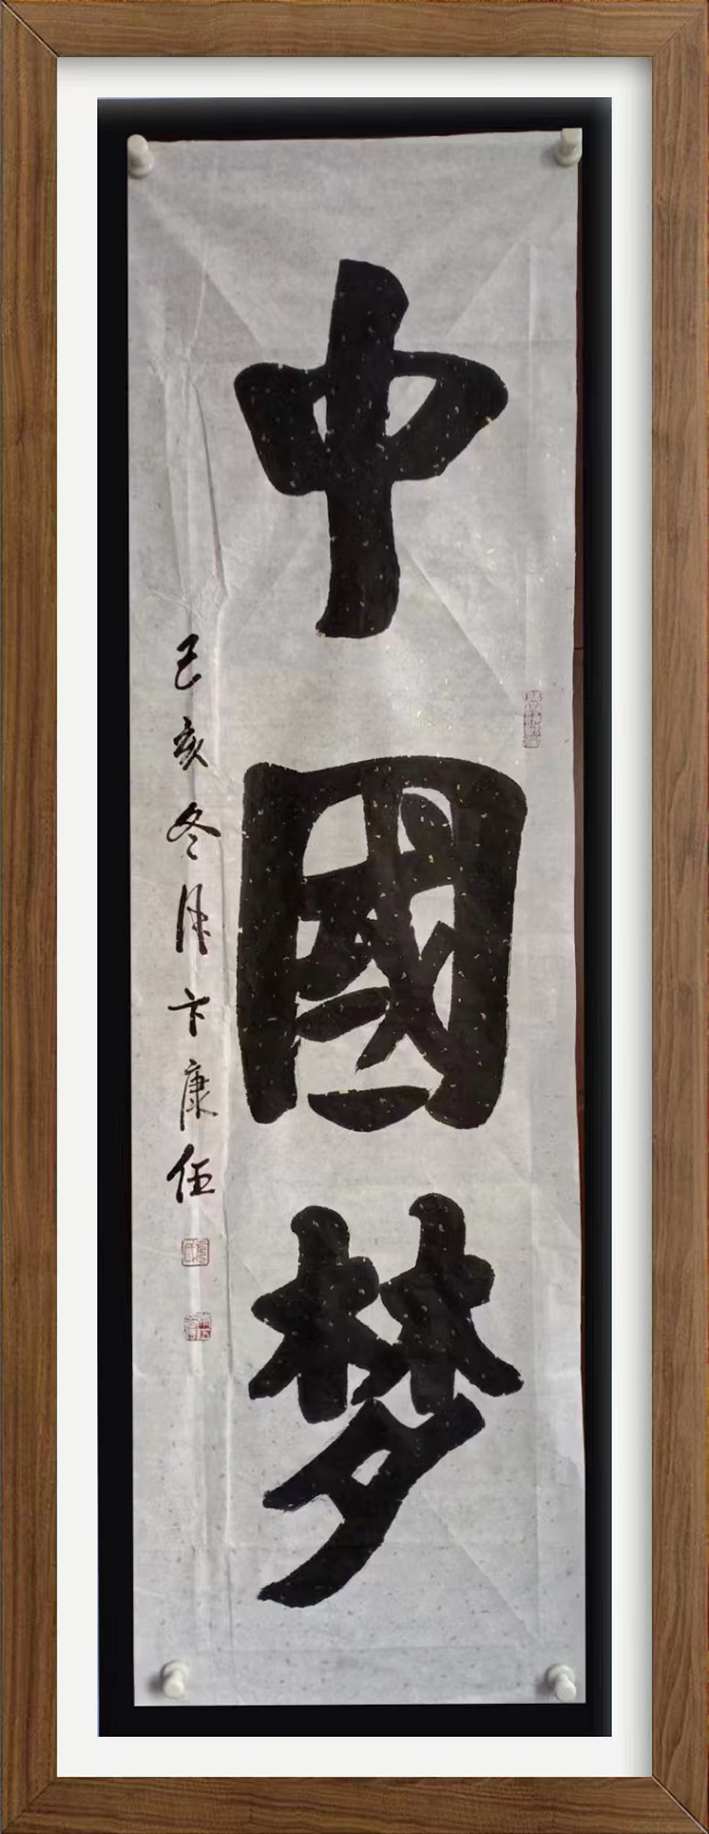 中國梦
己亥冬月卞康任